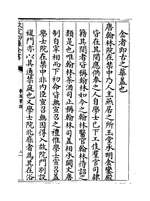 金者即古之義也
唐翰林院在禁中乃人主燕居之所玉堂承明金鑾殿
皆在其間應供奉之人自學士已下工伎羣官司隸
籍其間者皆稱翰林如今之翰林醫官翰林待詔之
類是也唯翰林茶酒司止稱翰林司蓋相承闕文唐
制自宰相而下初命皆無宣召之禮惟學士宣召蓋
學士院在禁中非内臣宣召無因得入故院門別設
複門亦以其通禁庭也又學士院北扉者為其在浴